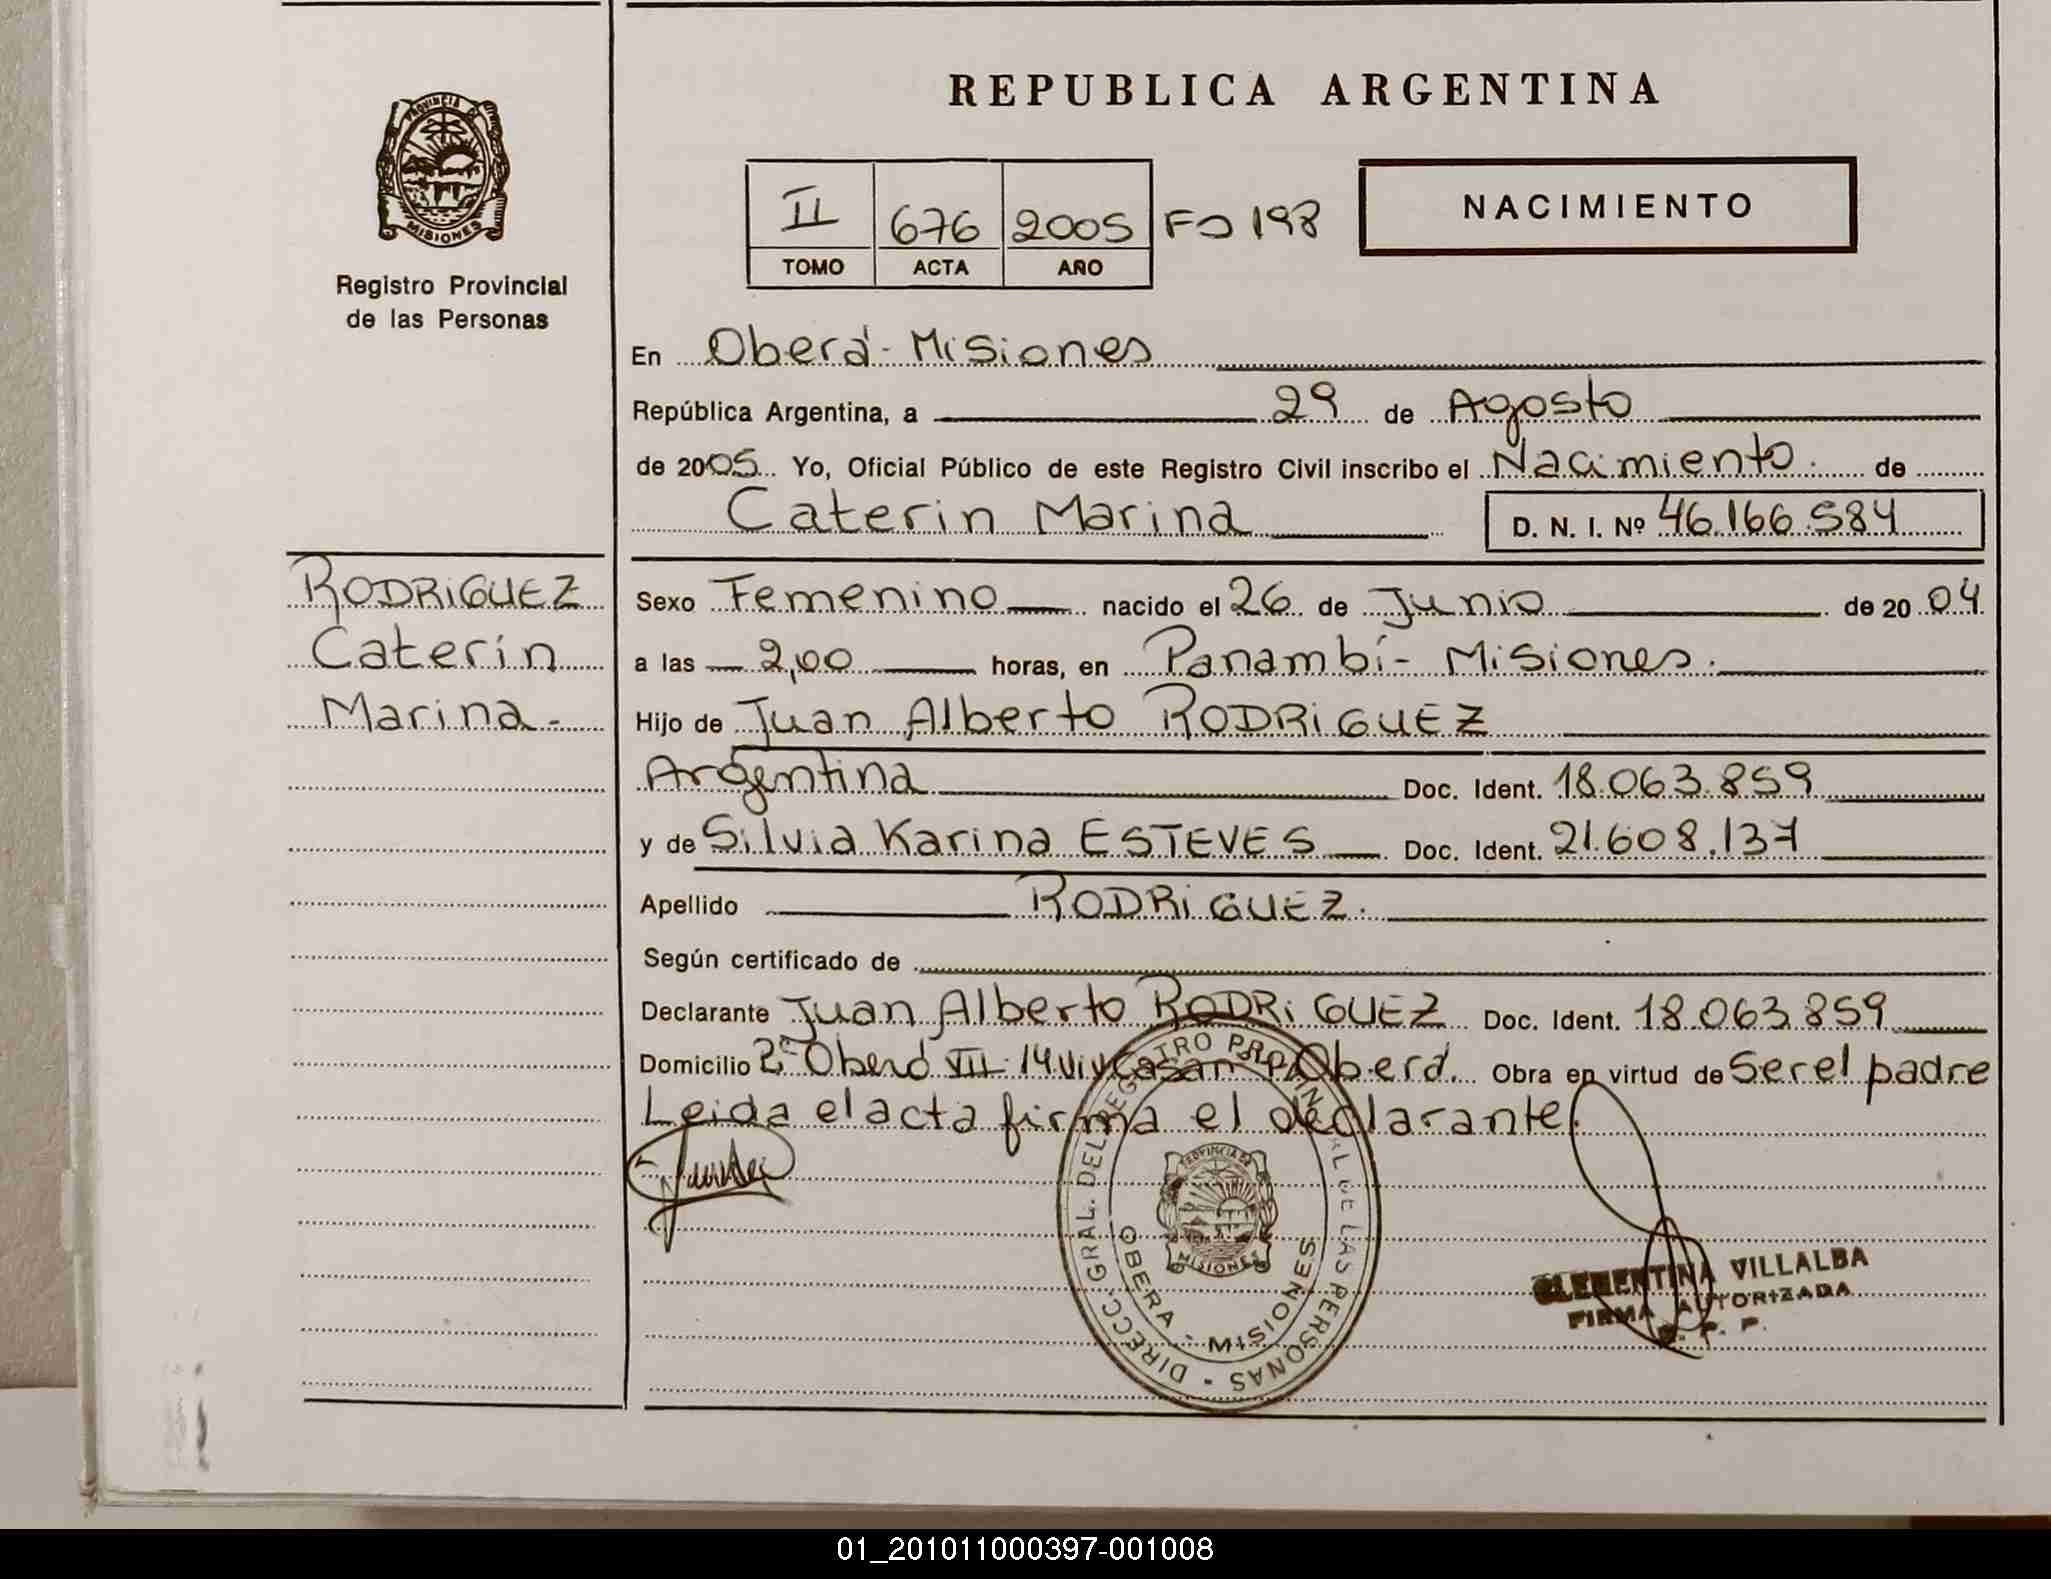 PROVINCIA
MISIONES
Registro Provincial
de las Personas
REPUBLICA ARGENTINA
II 676 2005 Fo 198
TOMO ACTA AÑO
NACIMIENTO
En Oberá - Misiones
República Argentina, a 29 de Agosto
de 2005 Yo, Oficial Público de este Registro Civil inscribo el Nacimiento de
Caterin Marina D. N. I. Nº 46.166.584
RODRIGUEZ
Caterin
Marina.-
Sexo Femenino nacido el 26 de Junio de 20 04
a las 2,00 horas, en Panambí - Misiones.
Hijo de Juan Alberto RODRIGUEZ
Argentina Doc. Ident. 18.063.859
y de Silvia Karina ESTEVES Doc. Ident. 21.608.137
Apellido RODRIGUEZ.
Según certificado de
Declarante Juan Alberto RODRIGUEZ Doc. Ident. 18.063.859
Domicilio Oberá VII 14 Viv Oberá. Obra en virtud de Ser el padre
Leida el acta firma el declarante.
DIRECC. GRAL. DEL REGISTRO PROVINCIAL DE LAS PERSONAS
OBERA - MISIONES
PROVINCIA DE
MISIONES
CLEMENTINA VILLALBA
FIRMA AUTORIZADA
R. P. P.
01_201011000397-001008